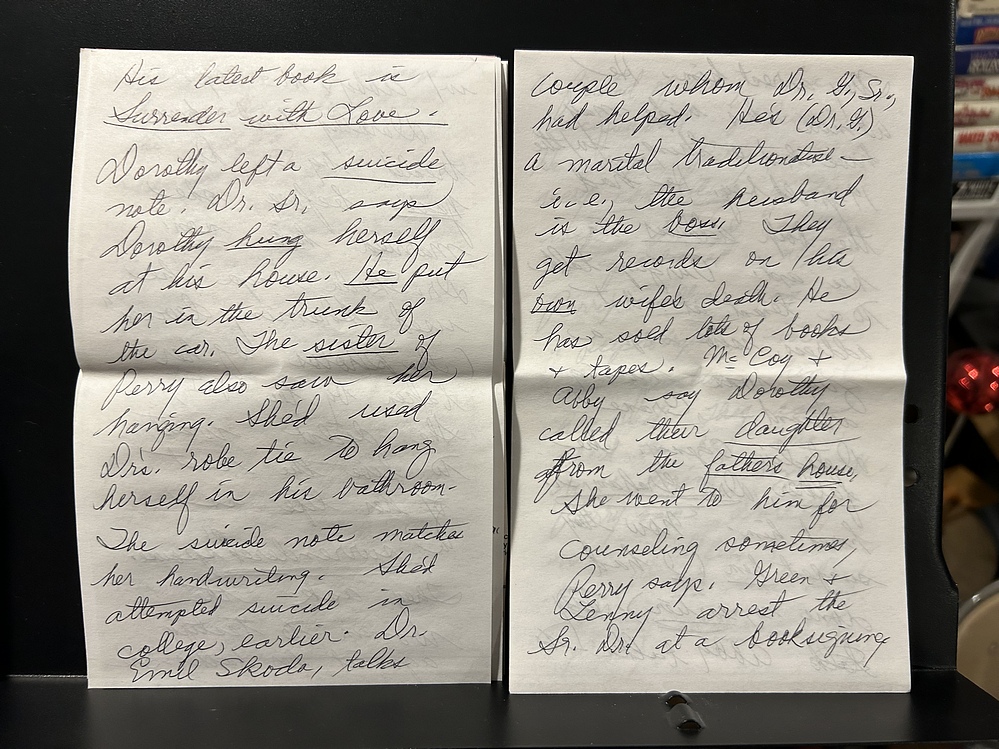 His latest book is
Surrender with Love.
Dorothy left a suicide
note. Dr. Sr. says
Dorothy hung herself
at his house. He put
her in the trunk of
the car. The sister of
Perry also saw her
hanging. She'd used
Dr's. robe tie to hang
herself in his bathroom-
The suicide note matches
her handwriting. She'd
attempted suicide in
college, earlier. Dr.
Emil Skoda, talks
couple whom Dr. G., Sr.,
had helped. He's (Dr. G.)
a marital traditionalist—
i.e., the husband
is the boss. They
get records on his
own wife's death. He
has sold lots of books
+ tapes. McCoy +
Abby say Dorothy
called their daughter
from the fathers house.
She went to him for
counseling sometimes,
Perry says. Green +
Lenny arrest the
Sr. Dr. at a booksigning